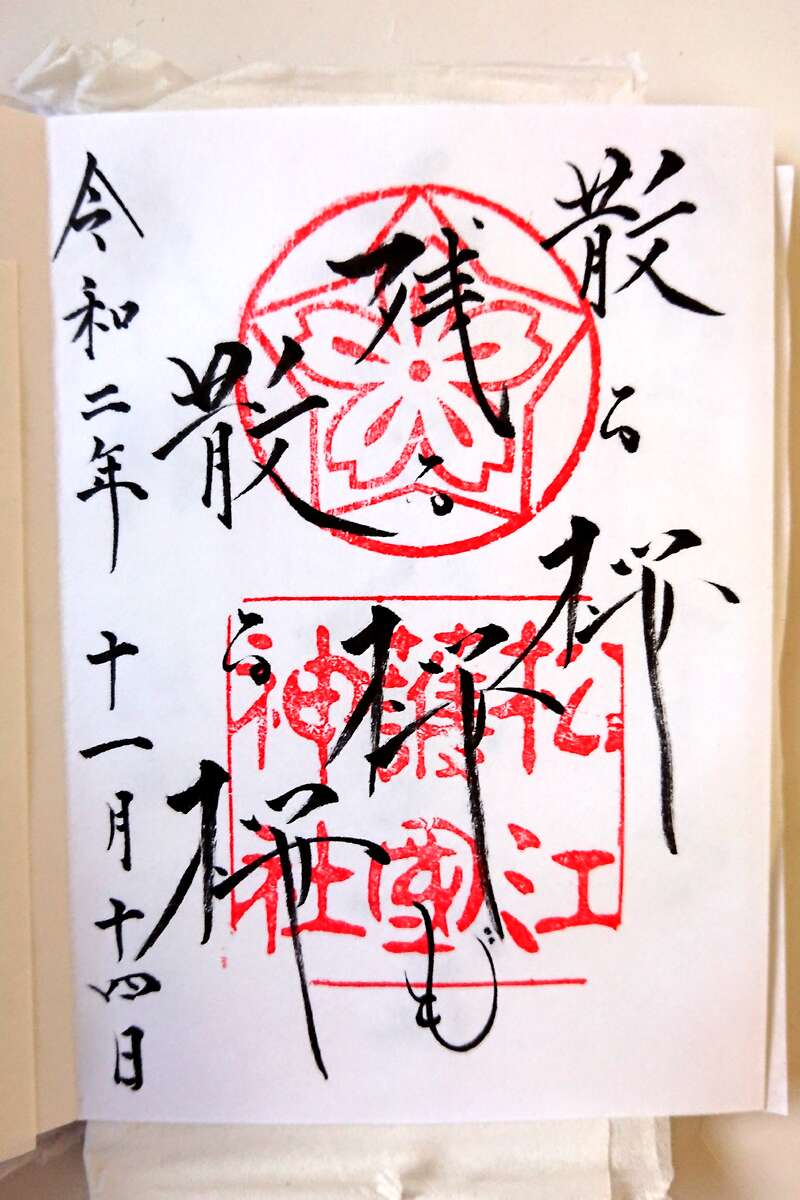 散る桜
残る桜も
散る桜
令和二年 十一月十四日
松江
護國
神社